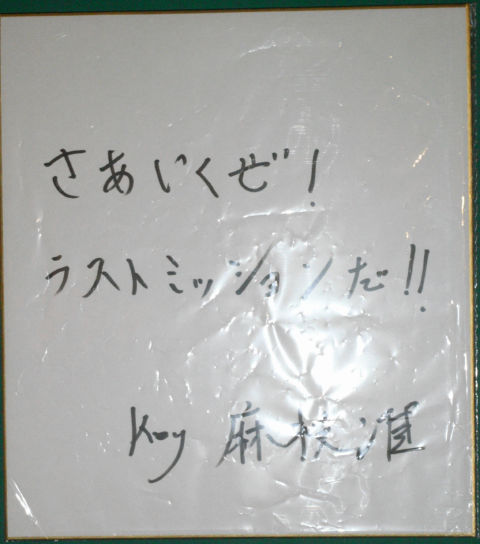 さあいくぜ！
ラストミッションだ!!
Key 麻枝准